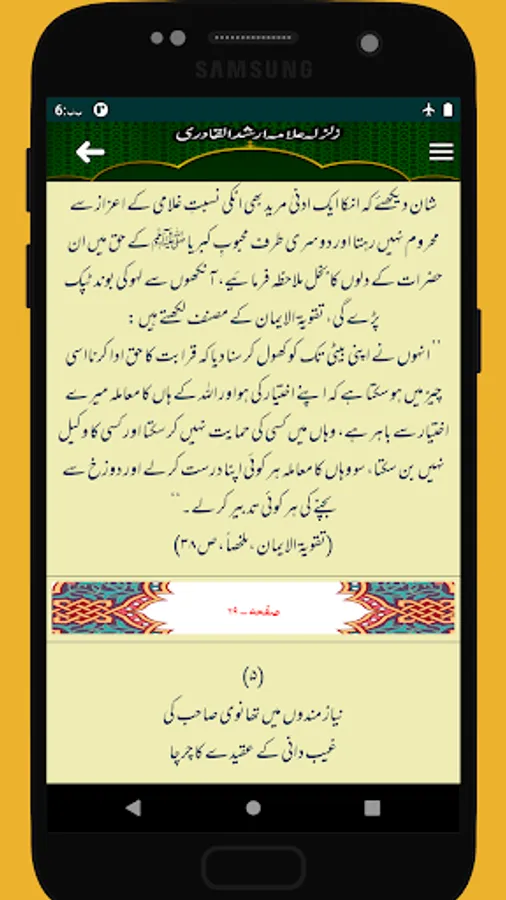 SAMSUNG
6:ب.ب
زلزلہ علامہ ارشد القادری
شان دیکھئے کہ انکا ایک ادنیٰ مرید بھی انکی نسبتِ غلامی کے اعزاز سے
محروم نہیں رہتا اور دوسری طرف محبوبِ کبریا ﷺ کے حق میں ان
حضرات کے دلوں کا بخل ملاحظہ فرمائیے، آنکھوں سے لہو کی بوند ٹپک
پڑے گی، تقویۃ الایمان کے مصنف لکھتے ہیں :
’’انہوں نے اپنی بیٹی تک کو کھول کر سنا دیا کہ قرابت کا حق ادا کرنا اسی
چیز میں ہو سکتا ہے کہ اپنے اختیار کی ہو اور اللہ کے ہاں کا معاملہ میرے
اختیار سے باہر ہے، وہاں میں کسی کی حمایت نہیں کر سکتا اور کسی کا وکیل
نہیں بن سکتا، سو وہاں کا معاملہ ہر کوئی اپنا درست کر لے اور دوزخ سے
بچنے کی ہر کوئی تدبیر کر لے۔‘‘
(تقویۃ الایمان، ملخصاً، ص۳۸)
صفحہ – ۲۹
(۵)
نیاز مندوں میں تھانوی صاحب کی
غیب دانی کے عقیدے کا چرچا